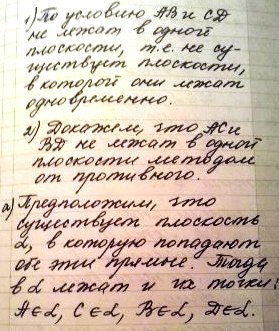 1) По условию AB и CD
не лежат в одной
плоскости, т.е. не су-
ществует плоскости,
в которой они лежат
одновременно.
2) Докажем, что AC и
BD не лежат в одной
плоскости методом
от противного.
а) Предположим, что
существует плоскость
α, в которую попадают
обе эти прямые. Тогда
в α лежат и их точки:
A∈α, C∈α, B∈α, D∈α.